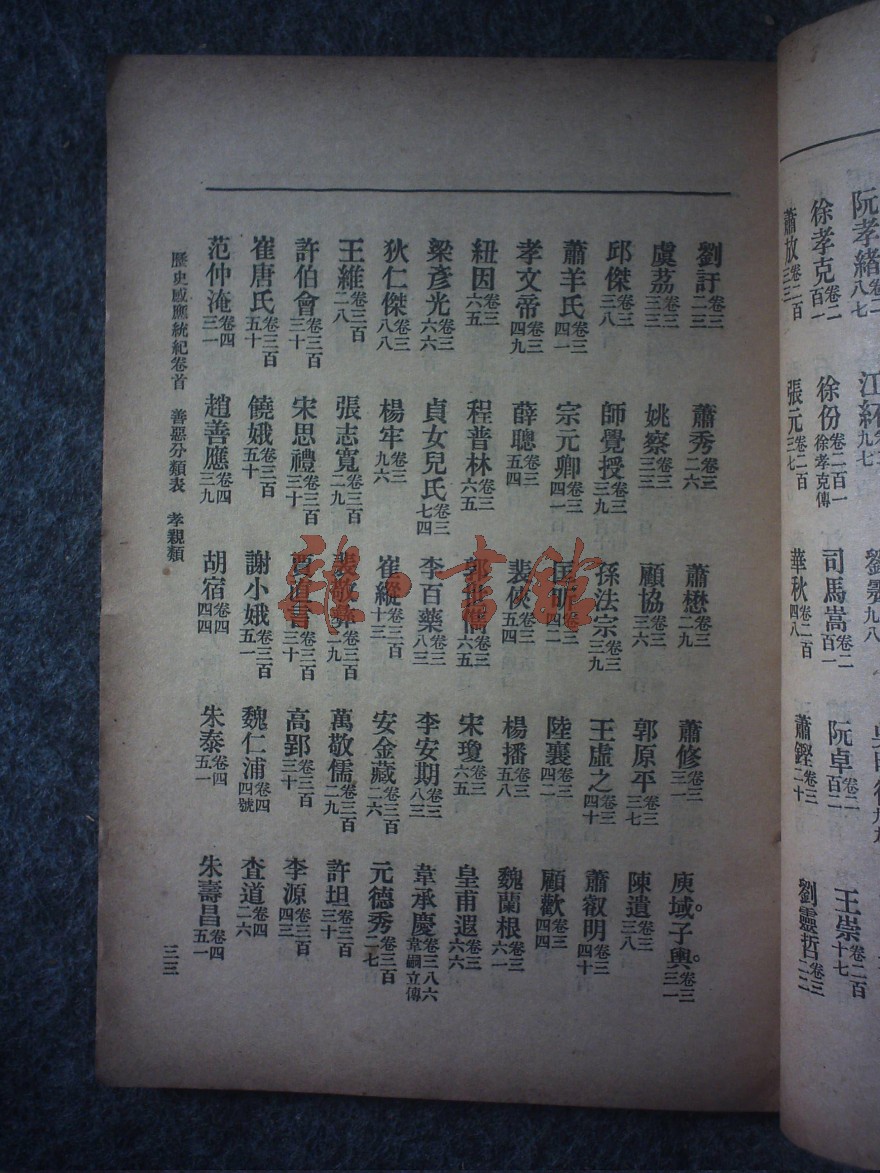 阮孝緒八七
徐孝克卷二百一
徐份卷二百一徐孝克傳
司馬嵩卷二百一
阮卓卷二百二
王崇卷二百十七
蕭放卷二百三三
張元卷二百三七
華秋卷二百四八
蕭鏗卷三二十
劉靈哲卷三二二
劉訏卷三二三
蕭秀卷三二六
蕭懋卷三二九
蕭修卷三三一
庾域。子輿。卷三三一
虞荔卷三三三
姚察卷三三三
顧協卷三三六
郭原平卷三三七
陳遺卷三三八
邱傑卷三三八
師覺授卷三三九
孫法宗卷三三九
王虛之卷三四十
蕭叡明卷三四十
蕭羊氏卷三四一
宗元卿卷三四一
匡昕卷三四二
陸襄卷三四二
顧歡卷三四四
孝文帝卷三四九
薛聰卷三五四
裴俠卷三五四
楊播卷三五八
魏蘭根卷三六一
紐因卷三六五
程普林卷三六五
郭世儁卷三六五
宋瓊卷三六五
皇甫遐卷三六六
梁彥光卷三六六
貞女兒氏卷三七四
李百藥卷三八三
李安期卷三八三
韋承慶卷三八六韋嗣立傳
狄仁傑卷三八八
楊牢卷三九六
崔縱卷三百十三
安金藏卷三百二六
元德秀卷三百二七
王維卷三百二八
張志寬卷三百二九
裴敬彝卷三百二九
萬敬儒卷三百二九
許坦卷三百三十
許伯會卷三百三十
宋思禮卷三百三十
賈直言卷三百三十
高郢卷三百三十
李源卷三百四三
崔唐氏卷三百五十
饒娥卷三百五十
謝小娥卷三百五一
魏仁浦卷四四號
査道卷四二六
范仲淹卷四三一
趙善應卷四三九
胡宿卷四四四
朱泰卷四五一
朱壽昌卷四五一
歷史感應統紀卷首　善惡分類表　孝親類
三三
雜·書館